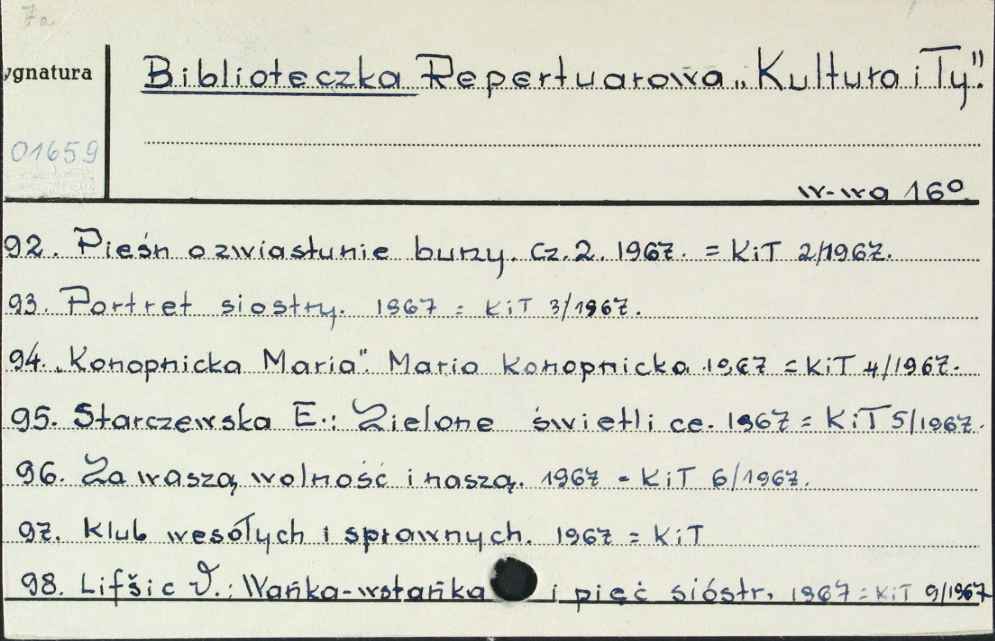 7a
ygnatura
Biblioteczka Repertuarowa „Kultura i Ty".
01659
W-wa 16°.
92. Pieśń o zwiastunie burzy. Cz. 2. 1967. = KiT 2/1967.
93. Portret siostry. 1967 = KiT 3/1967.
94. „Konopnicka Maria". Maria Konopnicka 1967 = KiT 4/1967.
95. Starczewska E.: Zielone świetlice. 1967 = KiT 5/1967.
96. Za waszą wolność i naszą. 1967 = KiT 6/1967.
97. Klub wesołych i sprawnych. 1967 = KiT
98. Lifšic V.: Wańka-wstańka i pięć sióstr. 1967 = KiT 9/1967